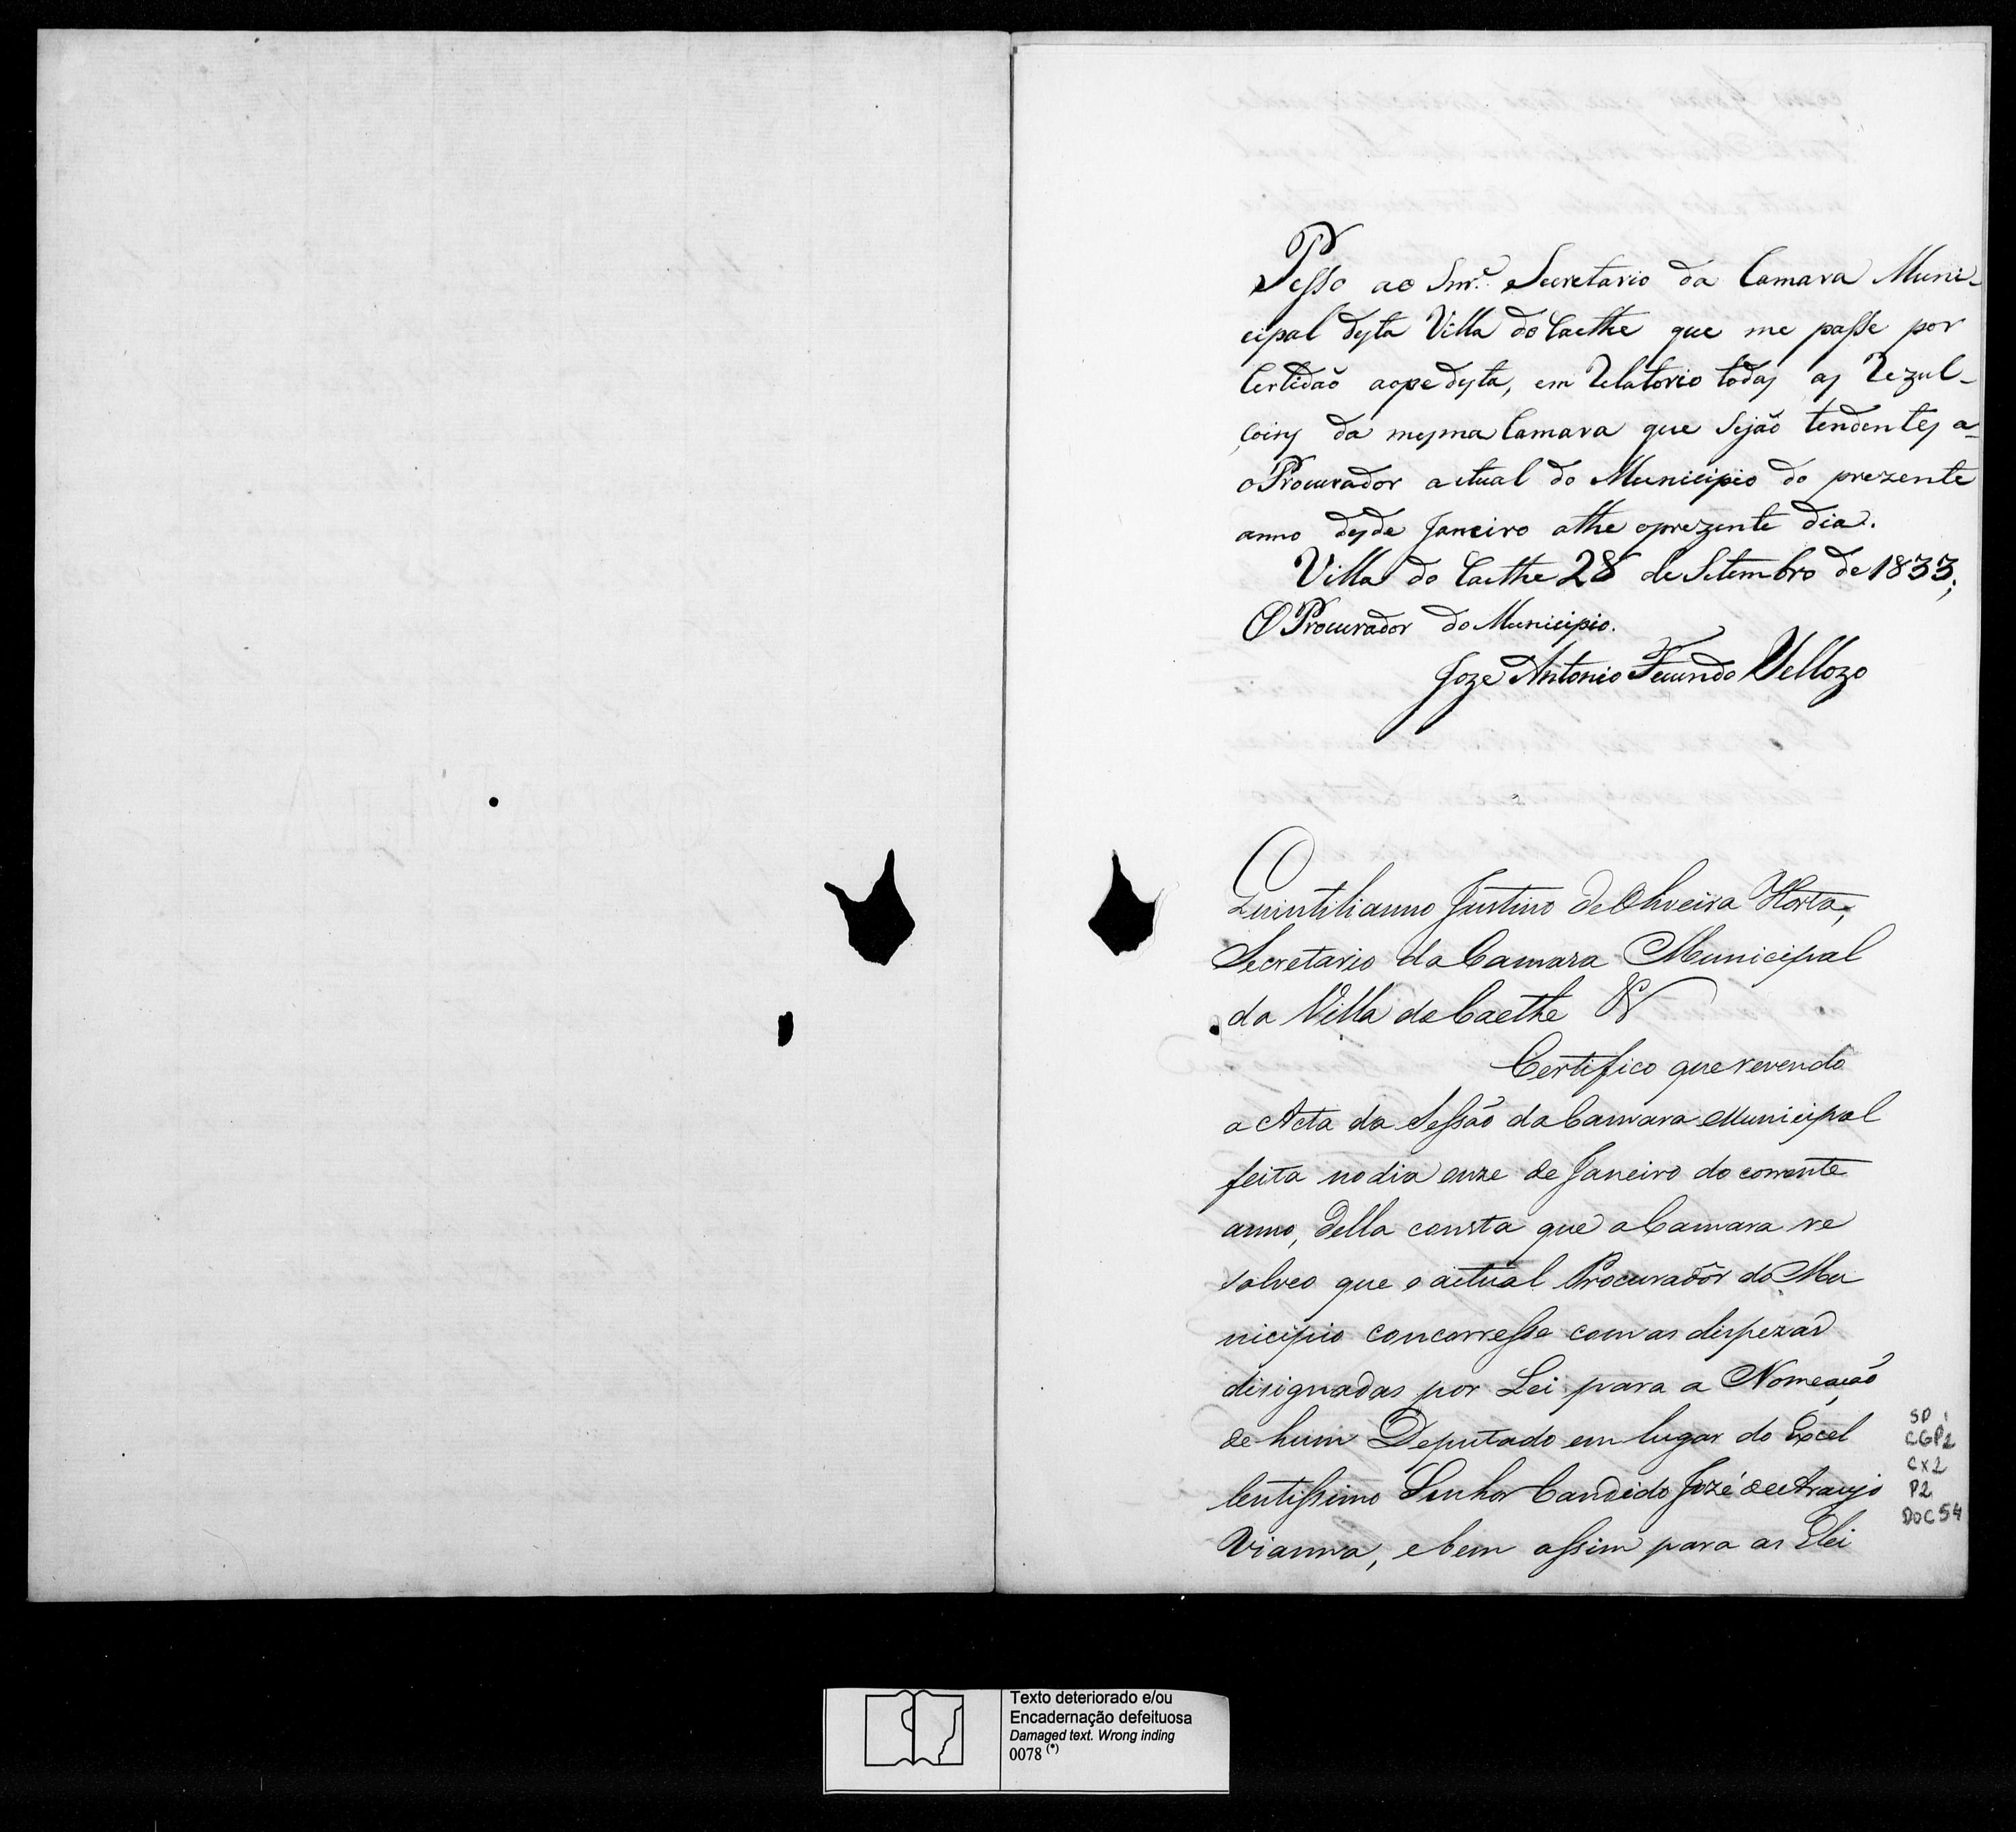 Pesso ao Snr.e Secretario da Camara Muni-
cipal desta Villa do Caethe que me passe por
Certidaõ aope desta, em Relatorio todas as Rezul-
çoins da mesma Camara que sejaõ tendentes a-
o Procurador actual do Municipio do prezente
anno desde Janeiro athe oprezente dia.
Villa do Caethe 28 de Setembro de 1833;
O Procurador do Municipio.
Joze Antonio Fecundo Vellozo
Quintilianno Justino de Oliveira Horta,
Secretario da Camara Municipal
da Villa do Caethe &
Certifico que revendo
a Acta da Sessaõ da Camara Municipal
feita no dia onze de Janeiro do corrente
anno, della consta que a Camara re
solveo que o actual Procurador do Mu
nicipio concorresse com as dispezas
disignadas por Lei para a Nomeaçaõ
de hum Deputado em lugar do Excel
lentissimo Senhor Candido Jozé de Araujo
Vianna, e bem assim para as Elei
SP
CGP1
CX2
P2
DOC 54
Texto deteriorado e/ou
Encadernação defeituosa
Damaged text. Wrong inding
0078 (*)